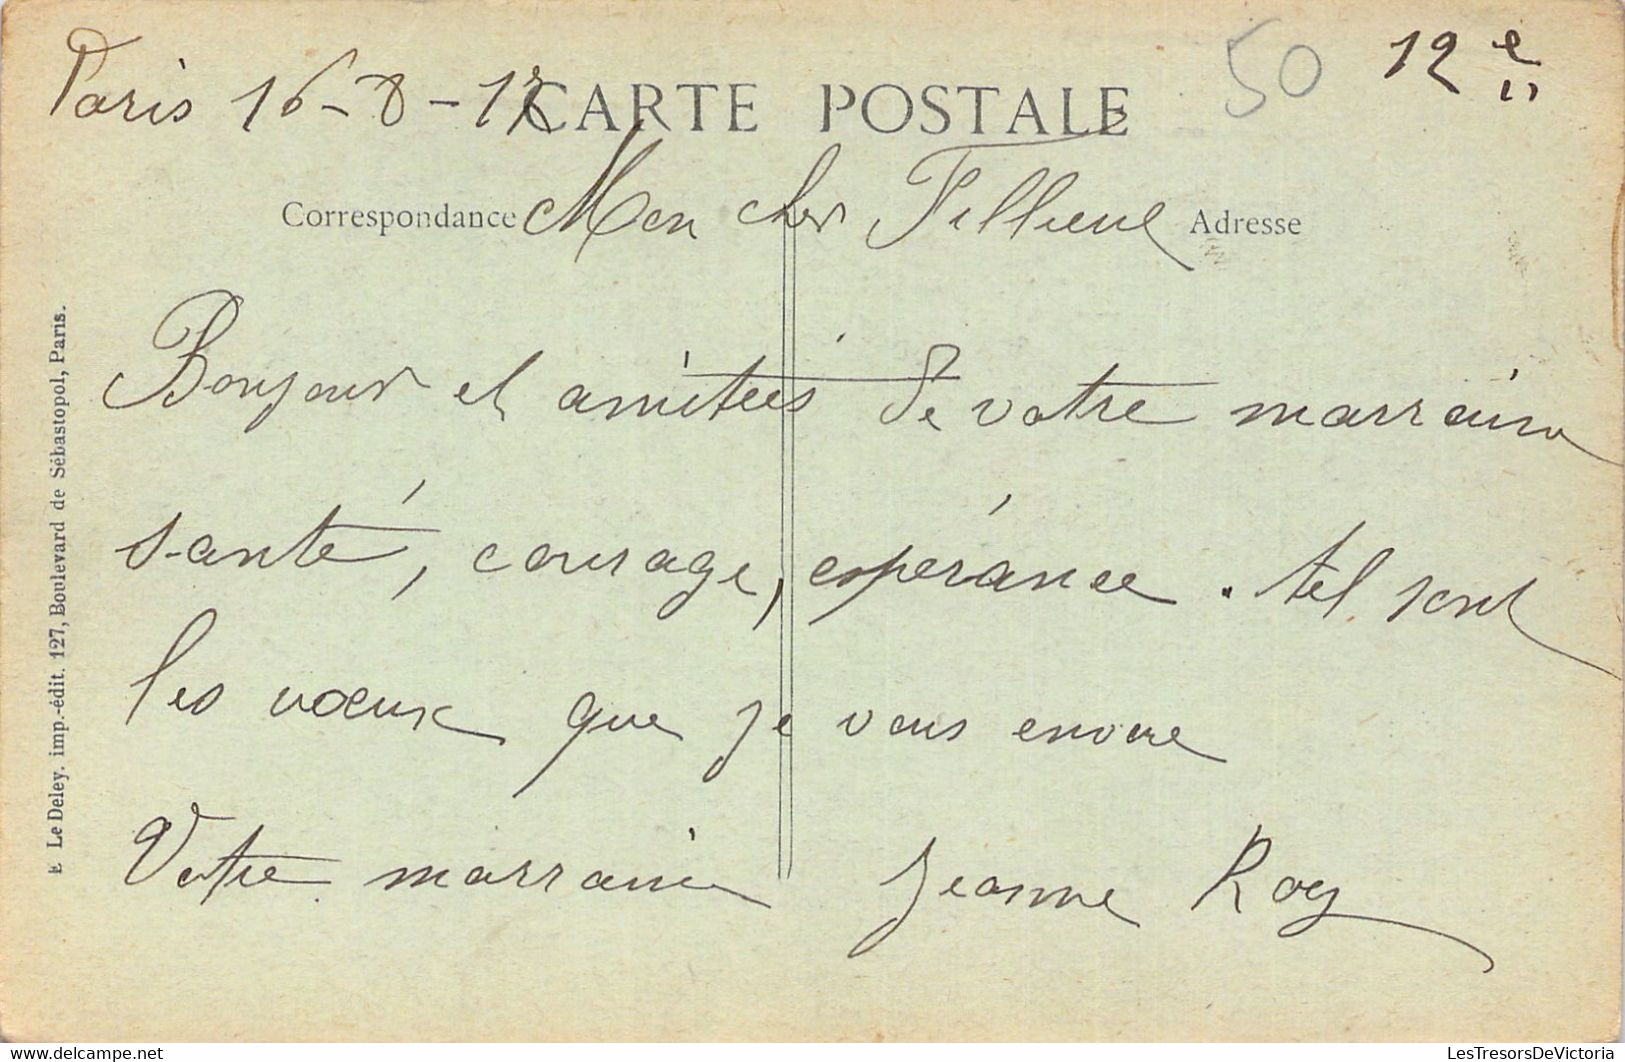 Paris 16-8-17 CARTE POSTALE 50 12e
Correspondance Mon cher Fillieul Adresse
Bonjour et amitiées de votre marraine
santé, courage, espérance. tel sont
les voeux que je vous envoie
Votre marraine Jeanne Roy
E Le Deley, imp.-édit. 127, Boulevard de Sébastopol, Paris.
LesTresorsDeVictoria